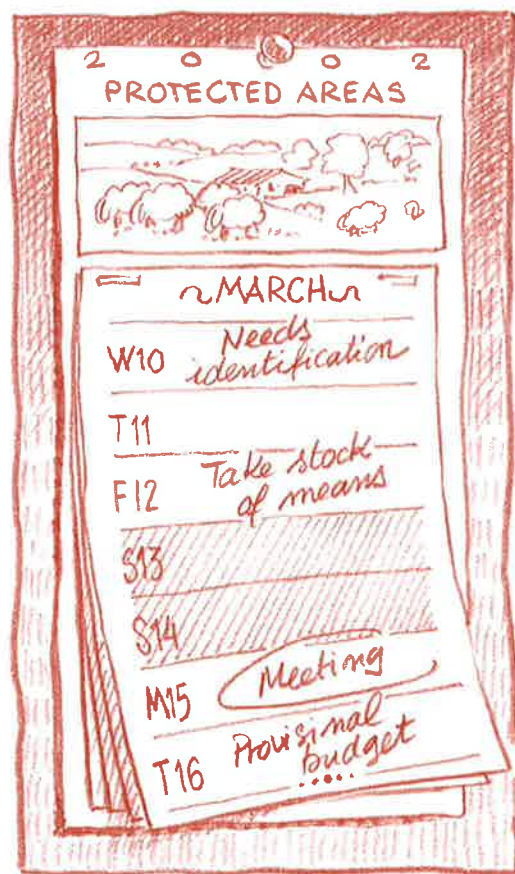 2 0 0 2
PROTECTED AREAS
MARCH
W10 Needs
identification
T11
F12 Take stock
of means
S13
S14
M15 Meeting
T16 Provisinal
budget